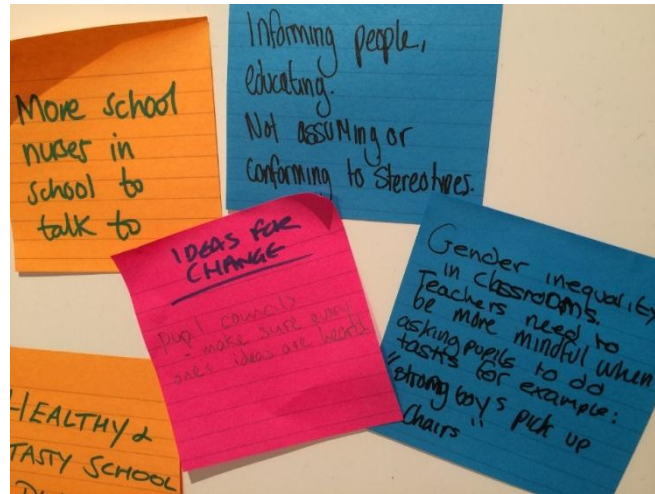 More school
nurses in
school to
talk to
Informing people,
educating.
Not assuming or
conforming to Stereotypes.
IDEAS FOR
CHANGE
pupil councils
- make sure every
one's ideas are heard
Gender inequality
in classrooms.
Teachers need to
be more mindful when
asking pupils to do
tasks for example:
"strong boys pick up
chairs"
HEALTHY &
TASTY SCHOOL